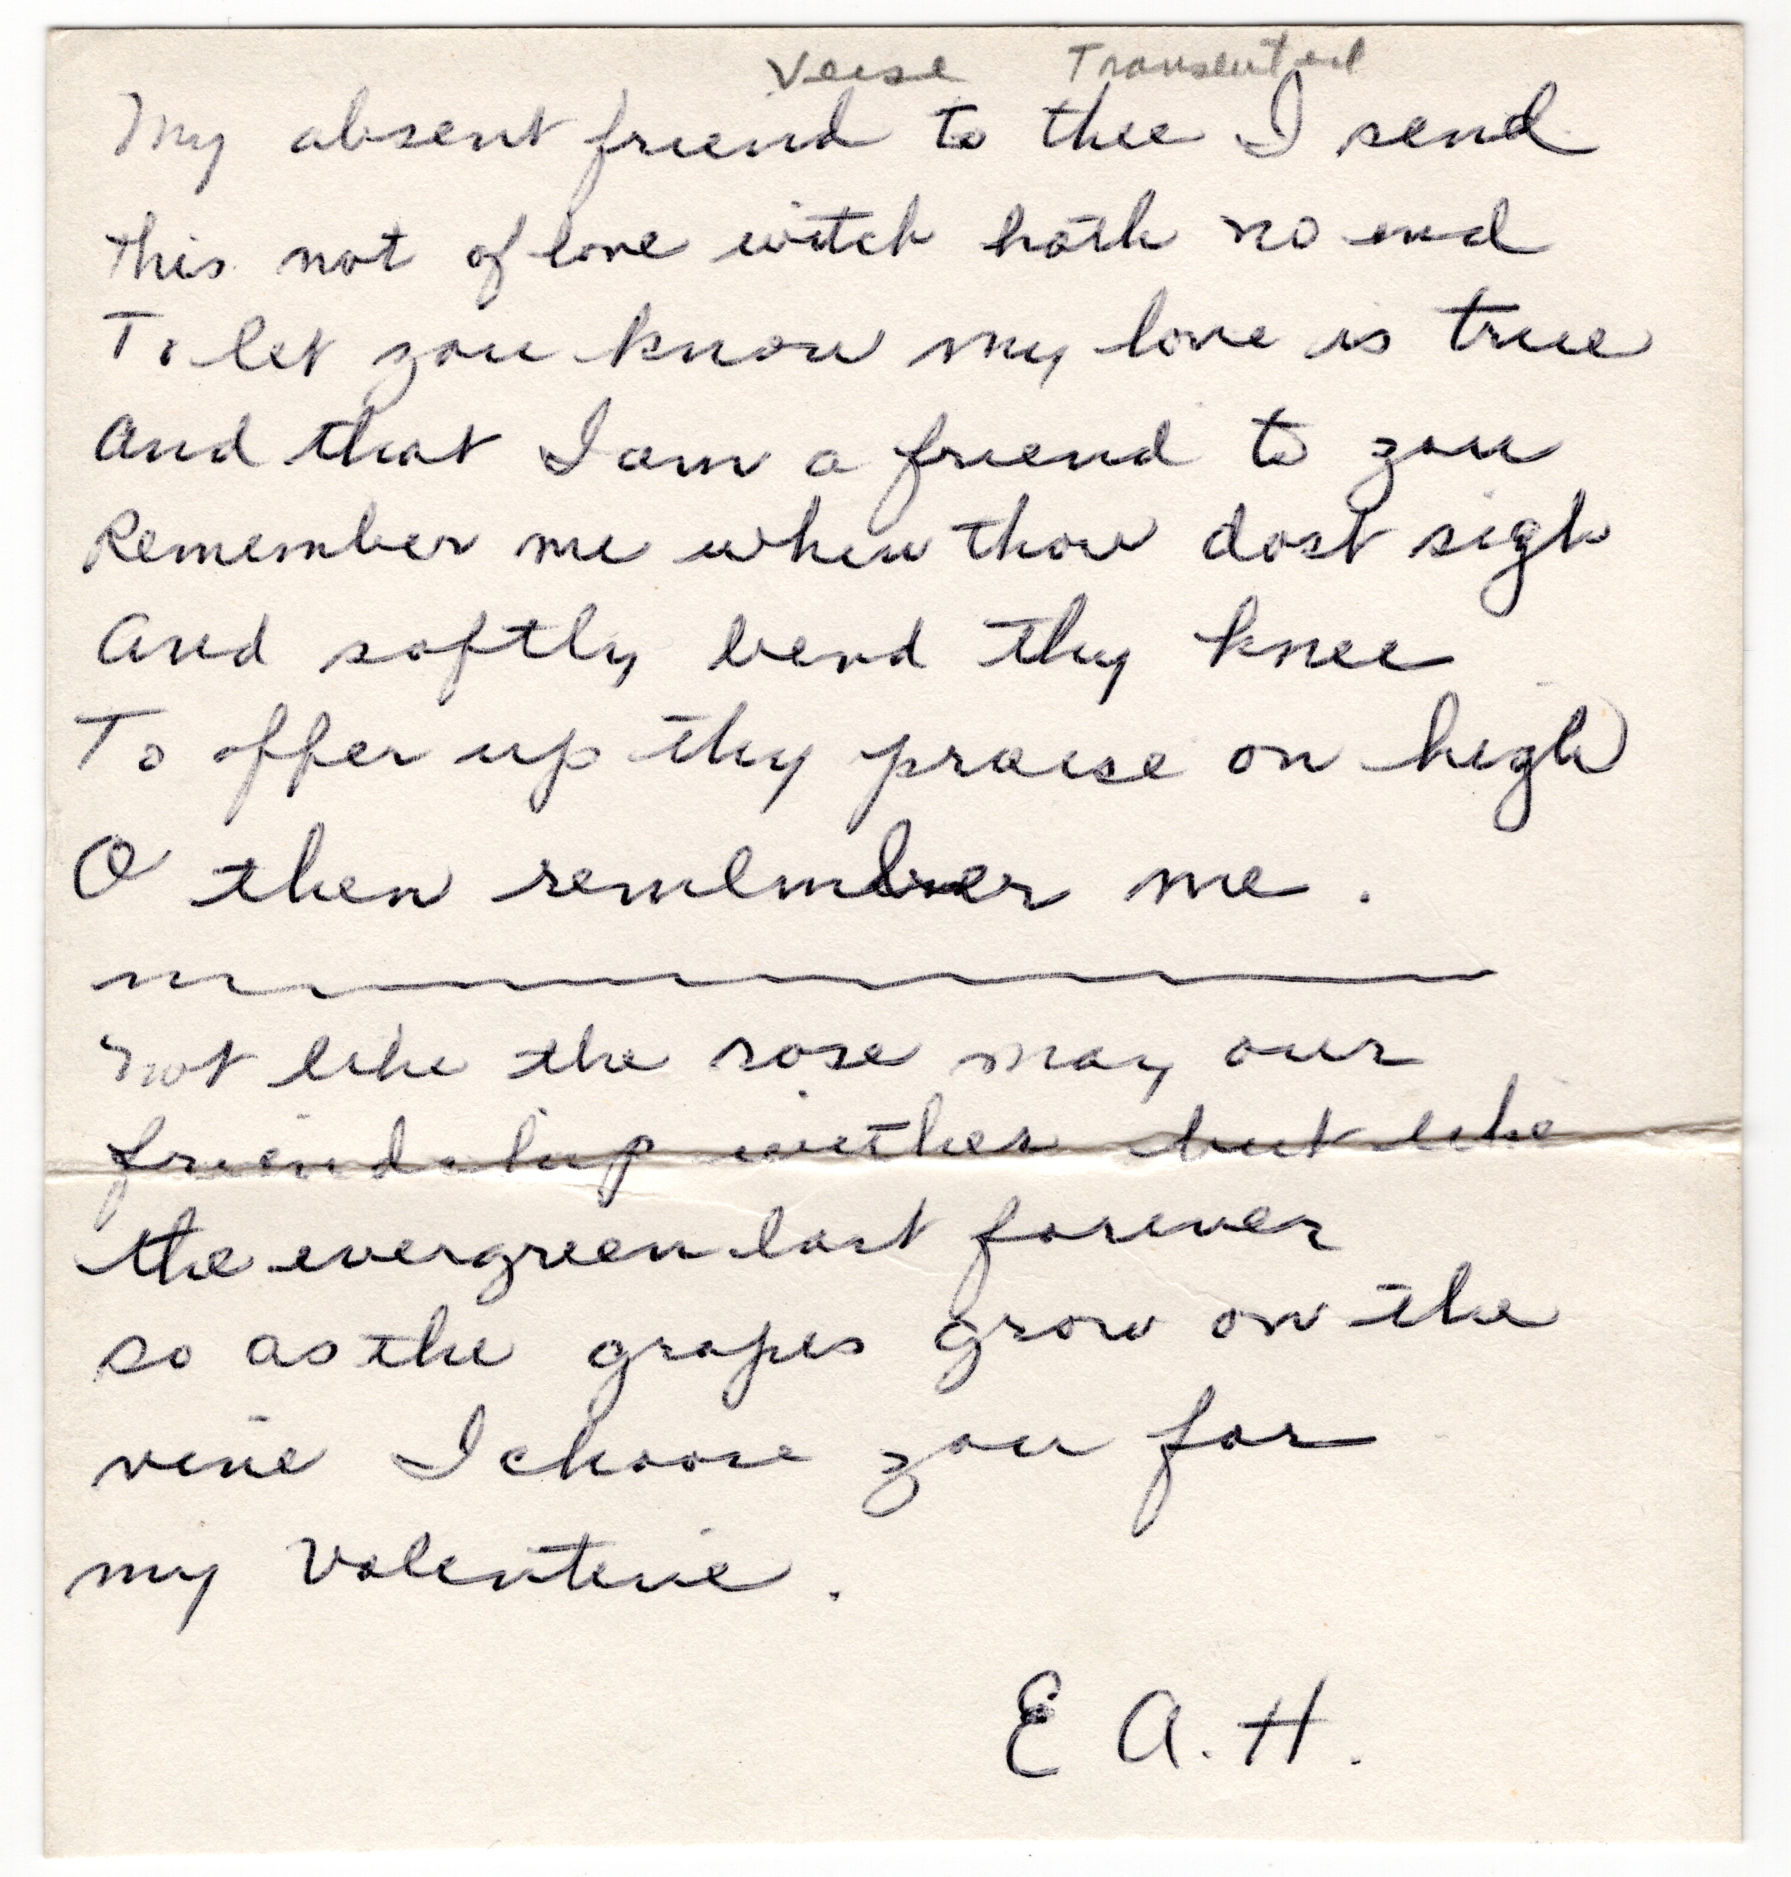 Verse
My absent friend to thee I send
this not of love witch hath no end
To let you know my love is true
And that I am a friend to you
Remember me when thow dost sigh
And softly bend thy knee
To offer up thy praise on high
O then remember me.
Not like the rose may our
friendship wither but like
the evergreen last forever
so as the grapes grow on the
vine I choose you for
my Valentine.
E A. H.